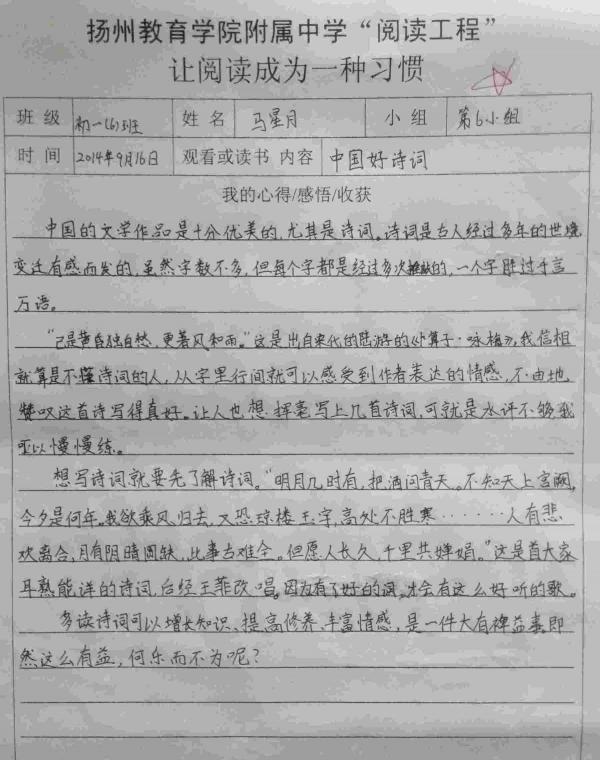 扬州教育学院附属中学“阅读工程”
让阅读成为一种习惯
班 级 初一(6)班 姓 名 马星月 小 组 第6小组
时 间 2014年9月16日 观看或读书 内容 中国好诗词
我的心得/感悟/收获
中国的文学作品是十分优美的,尤其是诗词。诗词是古人经过多年的世境
变迁有感而发的,虽然字数不多,但每个字都是经过多次推敲的,一个字胜过千言
万语。
“已是黄昏独自愁,更著风和雨。”这是出自宋代的陆游的《卜算子·咏梅》,我信相
就算是不懂诗词的人,从字里行间就可以感受到作者表达的情感,不由地,
赞叹这首诗写得真好。让人也想挥毫写上几首诗词,可就是水评不够我
可以慢慢练。
想写诗词就要先了解诗词。“明月几时有,把酒问青天。不知天上宫阙,
今夕是何年。我欲乘风归去,又恐琼楼玉宇,高处不胜寒·······人有悲
欢离合,月有阴晴圆缺,此事古难全。但愿人长久,千里共婵娟。”这是首大家
耳熟能详的诗词,台经王菲改唱。因为有了好的词,才会有这么好听的歌。
多读诗词可以增长知识、提高修养、丰富情感,是一件大有裨益事,即
然这么有益,何乐而不为呢?